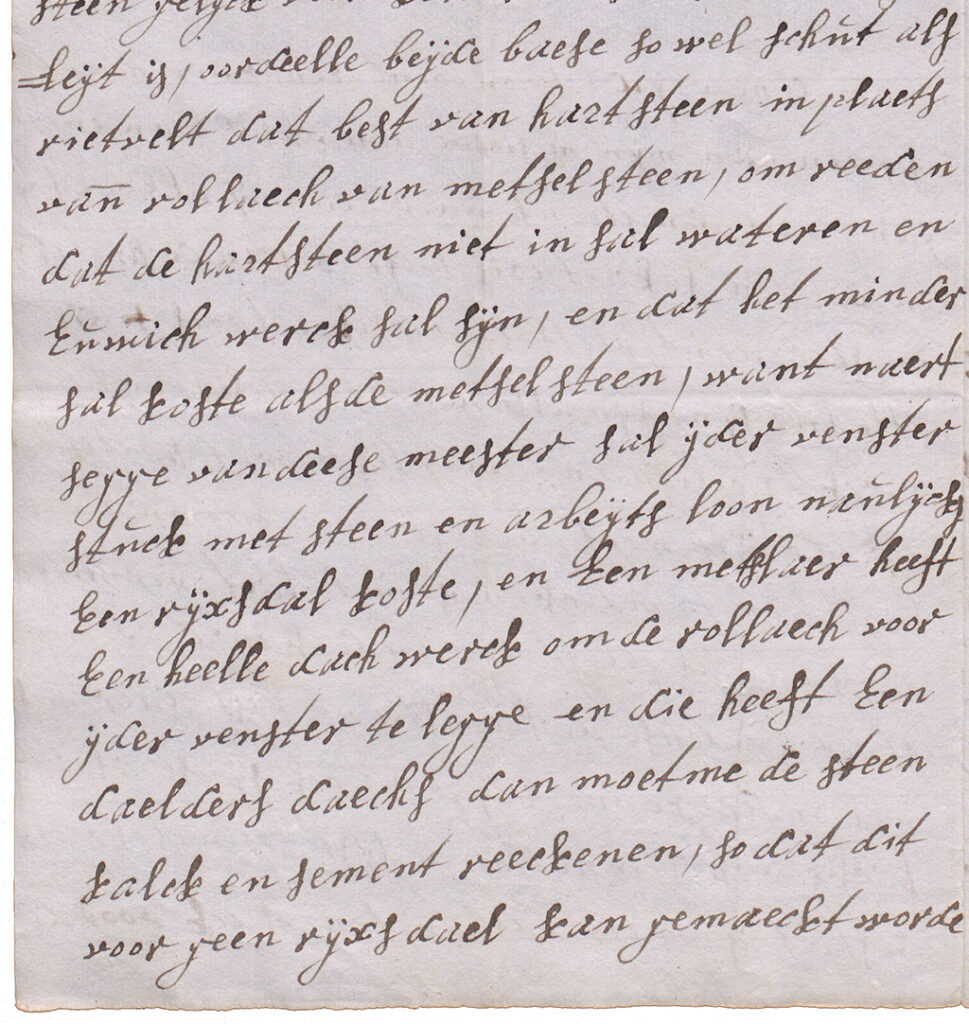 steen gelyck
=leyt is, oordeelle beyde baese so wel schut als
rietvelt dat best van hartsteen in plaets
van rollaech van metselsteen, om reeden
dat de hartsteen niet in sal wateren en
Euwich werck sal syn, en dat het minder
sal koste als de metselsteen, want naert
segge van deese meester sal yder venster
stuck met steen en arbeyts loon naulyck
Een ryxsdal koste, en Een metslaer heeft
Een heelle dach werck om de rollaech voor
yder venster te legge en die heeft Een
daelders daechs dan moetme de steen
kalck en sement reeckenen, so dat dit
voor geen ryxsdael kan gemaeckt worde